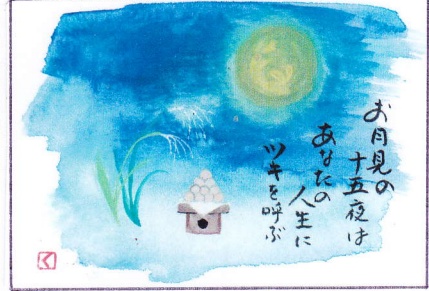 お月見の
十五夜は
あなたの
人生に
ツキを呼ぶ
く